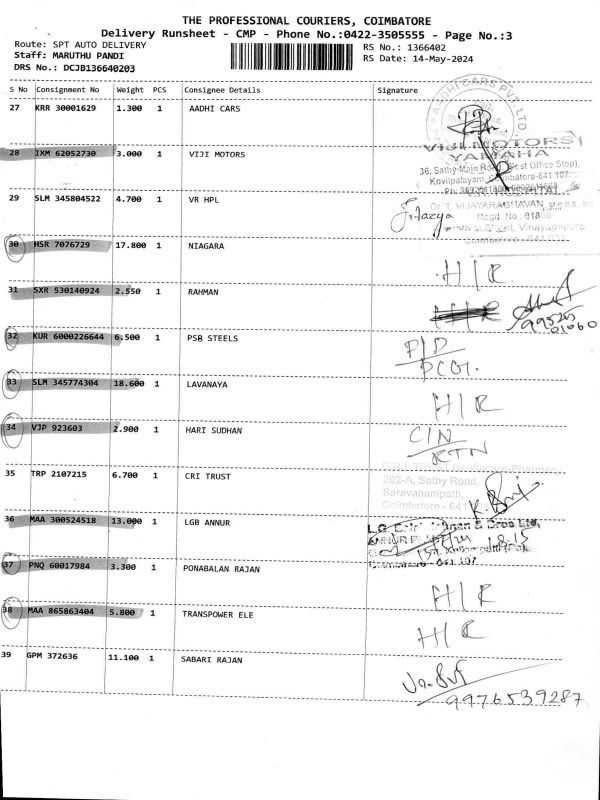 THE PROFESSIONAL COURIERS, COIMBATORE
Delivery Runsheet - CMP - Phone No.:0422-3505555 - Page No.:3
Route: SPT AUTO DELIVERY
RS No.: 1366402
Staff: MARUTHU PANDI
RS Date: 14-May-2024
DRS No.: DCJB136640203
S No Consignment No Weight PCS Consignee Details Signature
27 KRR 30001629 1.300 1 AADHI CARS
AADHI CARS PVT. LTD
VIJI MOTORS
YAMAHA
28 IXM 62052730 3.000 1 VIJI MOTORS
36, Sathy Main Road, (Post Office Stop),
Kovilpalayam, Coimbatore-641 107.
29 SLM 345804522 4.700 1 VR HPL
Dr. T. VIJAYARAGHAVAN, M.B.B.S.,
Regd. No.
30 HSR 7076729 17.800 1 NIAGARA
H/R
31 SXR 530140924 2.550 1 RAHMAN
32 KUR 6000226644 6.500 1 PSB STEELS
P/D
33 SLM 345774304 18.600 1 LAVANAYA
H/R
34 VJP 923603 2.900 1 HARI SUDHAN
C/N
RTN
35 TRP 2107215 6.700 1 CRI TRUST
202-A, Sathy Road,
Saravanampatti,
Coimbatore - 641
36 MAA 300524518 13.000 1 LGB ANNUR
& Bros Ltd,
37 PNQ 60017984 3.300 1 PONABALAN RAJAN
H/R
38 MAA 865863404 5.800 1 TRANSPOWER ELE
39 GPM 372636 11.100 1 SABARI RAJAN
9976539287